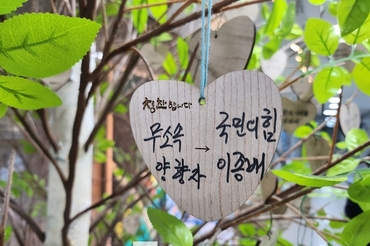 청원합니다
무소속 → 국민의힘
양향자 이종배